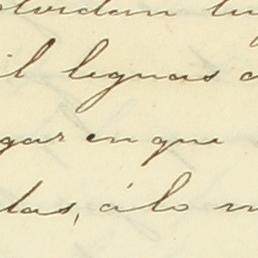 olvidan lu
il leguas a
gar en que
las, á lo m